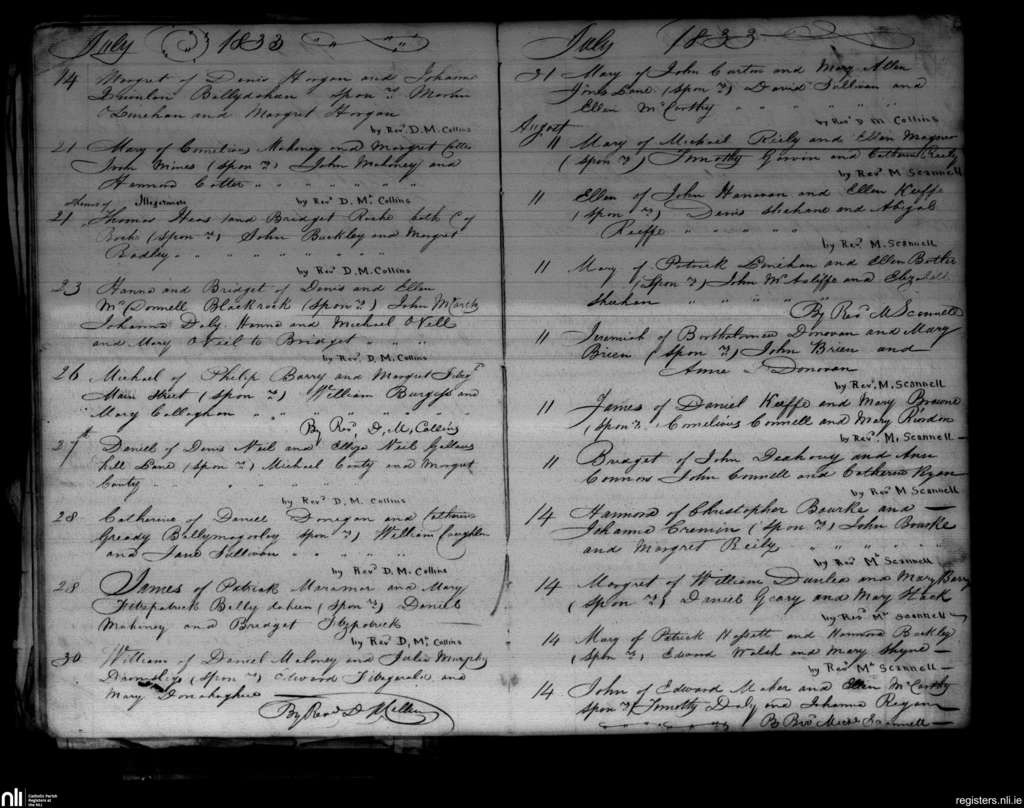 July 1833
14 Margret of Denis Horgan and Johana
Quinlan Ballydahan Spon rs Martin
O Linehan and Margret Horgan
by Revd D. M. Collins
21 Mary of Cornelius Mahoney and Margret Cotter
Mines (Spon rs) John Mahoney and
Hannora Cotter " " " " " "
by Revd D. Mc Collins
21 Thomas Hens and Bridget Roche both of
Rocks (Spon rs) John Buckley and Margret
Badley " " " " " "
by Revd D. M. Collins
23 Hanna and Bridget of Denis and Ellen
Mc Donnell Blackrock (Spon rs) John McCarty
Johanna Daly. Hanna and Michael O Nell
and Mary O Neil to Bridget " " "
by Revd D. M. Collins
26 Michael of Philip Barry and Margret
Main Street (Spon rs) William Burgess and
Mary Callaghan " " " " "
By Revd D, M, Collins
27th Daniel of Denis Neil and Neil Gallows
hill Lane (Spon rs) Michael Canty and Margret
Canty " " " " "
by Revd D. M. Collins
28 Catherine of Daniel Donegan and Catherine
Gready Ballymagooley Spon rs) William Coughlen
and Jane Sullivan " " " "
by Revd D. M. Collins
28 James of Patrick Maramar and Mary
Fitzpatrick Bally dahan (Spon rs) Daniel
Mahoney and Bridget Fitzpatrick
by Revd D, Mc Collins
30 William of Daniel Mahoney and Julia Murphy
(Spon rs) Edward Fitzgerald and
Mary Donahughue
By Revd D
July 1833
31 Mary of John Curtin and Mary Allen
Lane (Spon rs) David Sullivan and
Ellen McCarthy " " " " " "
by Revd D M Collins
August
11 Mary of Michael Reily and Ellen Magner
(Spon rs) Timothy Girvon and Catherine Reily
by Revd M Scannell
11 Ellen of John Hanavan and Ellen Keeffe
(Spon rs) Denis Shehane and Abigal
Keeffe " " " " "
by Revd M. Scannell
11 Mary of Patrick Linehan and Ellen Botler
(Spon rs) John McAuliffe and
Shehan " " " " "
By Revd M Scannell
11 Jeremiah of Bartholomew Donovan and Mary
Brien (Spon rs) John Brien and
Anne Donovan
by Revd. M. Scannell
11 James of Daniel Keeffe and Mary Browne
(Spon rs. Cornelious Connell and Mary Riordon
by Revd. M, Scannell
11 Bridget of John Leahey and Ann
Connors John Connell and Catherine Ryan
by Revd M Scannell
14 Hannora of Christopher Bourke and
Johanna Cremin (Spon rs) John Bourke
and Margret Reily " " " " "
by Revd Mc Scannell
14 Margret of William Dunlea and Mary Barry
(Spon rs) Daniel Geary and Mary Hack
by Revd Mc Scannell
14 Mary of Patrick Hassett and Hannora Buckley
(Spon rs) Edward Walsh and Mary Shyne
by Revd Mc Scannell
14 John of Edward Maher and Ellen McCarthy
Spon rs) Timothy Daly and Johanna Regan
B Revd Michl Scannell
nli Catholic Parish
Registers at
the NLI
registers.nli.ie